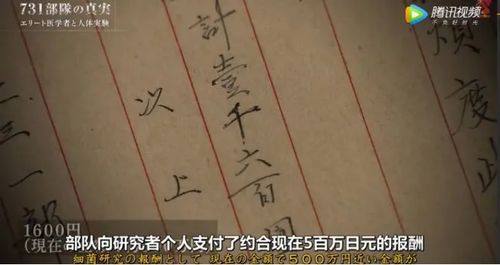 731部隊の真実
エリート医学者と人体実験
腾讯视频
不负好时光
煩度此
計壹千六百圓
次上
1600円
(現在
部队向研究者个人支付了约合现在5百万日元的报酬
細菌研究の報酬として 現在の金額で500万円近い金額が